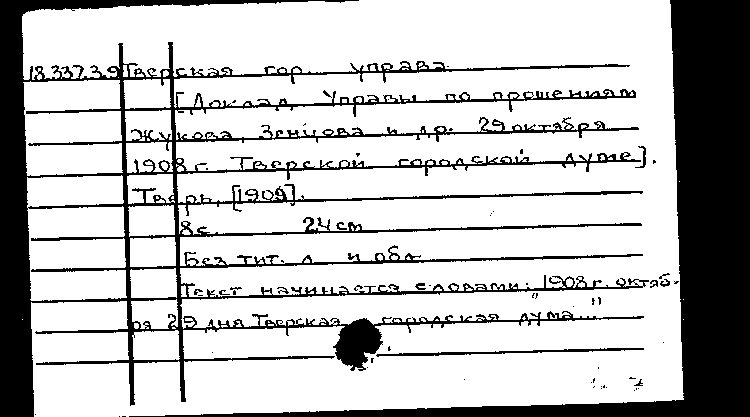 18.337.3.9 Тверская гор. управа.
[Доклад Управы по прошениям
Жукова, Зенцова и др. 29 октября
1908 г. Тверской городской думе].
Тверь, [1909].
8 с. 24 см
Без тит. л. и обл.
Текст начинается словами: "1908 г. октяб-
ря 29 дня Тверская городская дума..."